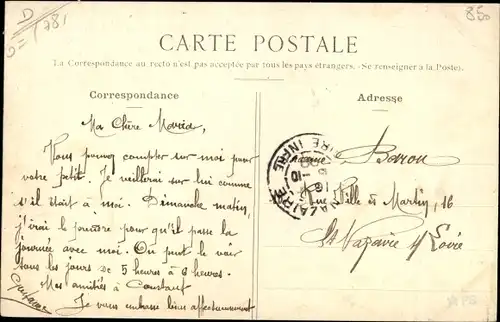 D
D=1781
850
CARTE POSTALE
La Correspondance au recto n'est pas acceptée par tous les pays étrangers. (Se renseigner à la Poste).
Correspondance
Adresse
Ma Chère Maria,
Vous pouvez compter sur moi pour
votre petit. Je veillerai sur lui comme
s'il était à moi. Dimanche matin,
j'irai le prendre pour qu'il passe la
journée avec moi. On peut le voir
tous les jours de 5 heures à 6 heures.
Mes amitiés à Constant
Je vous embrasse bien affectueusement
Baron
Rue Ville ès Martin, 16
St Nazaire s/ Loire